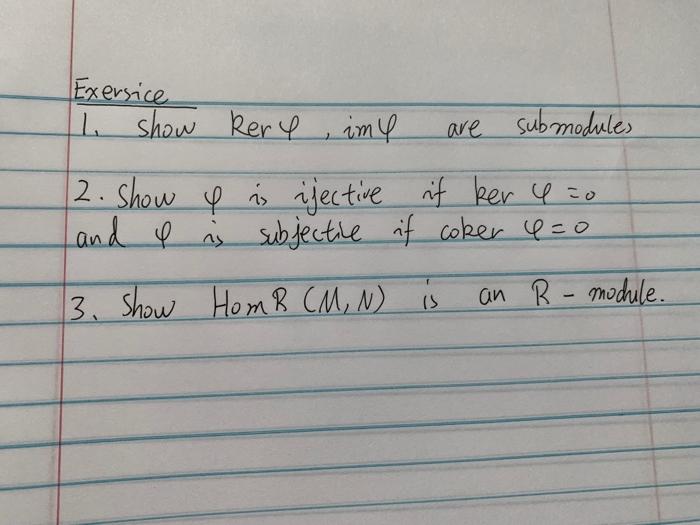 Exersice
1. show Ker φ, im φ are submodules
2. Show φ is ijective if ker φ = 0
and φ is subjective if coker φ = 0
3. Show Hom R (M, N) is an R - module.